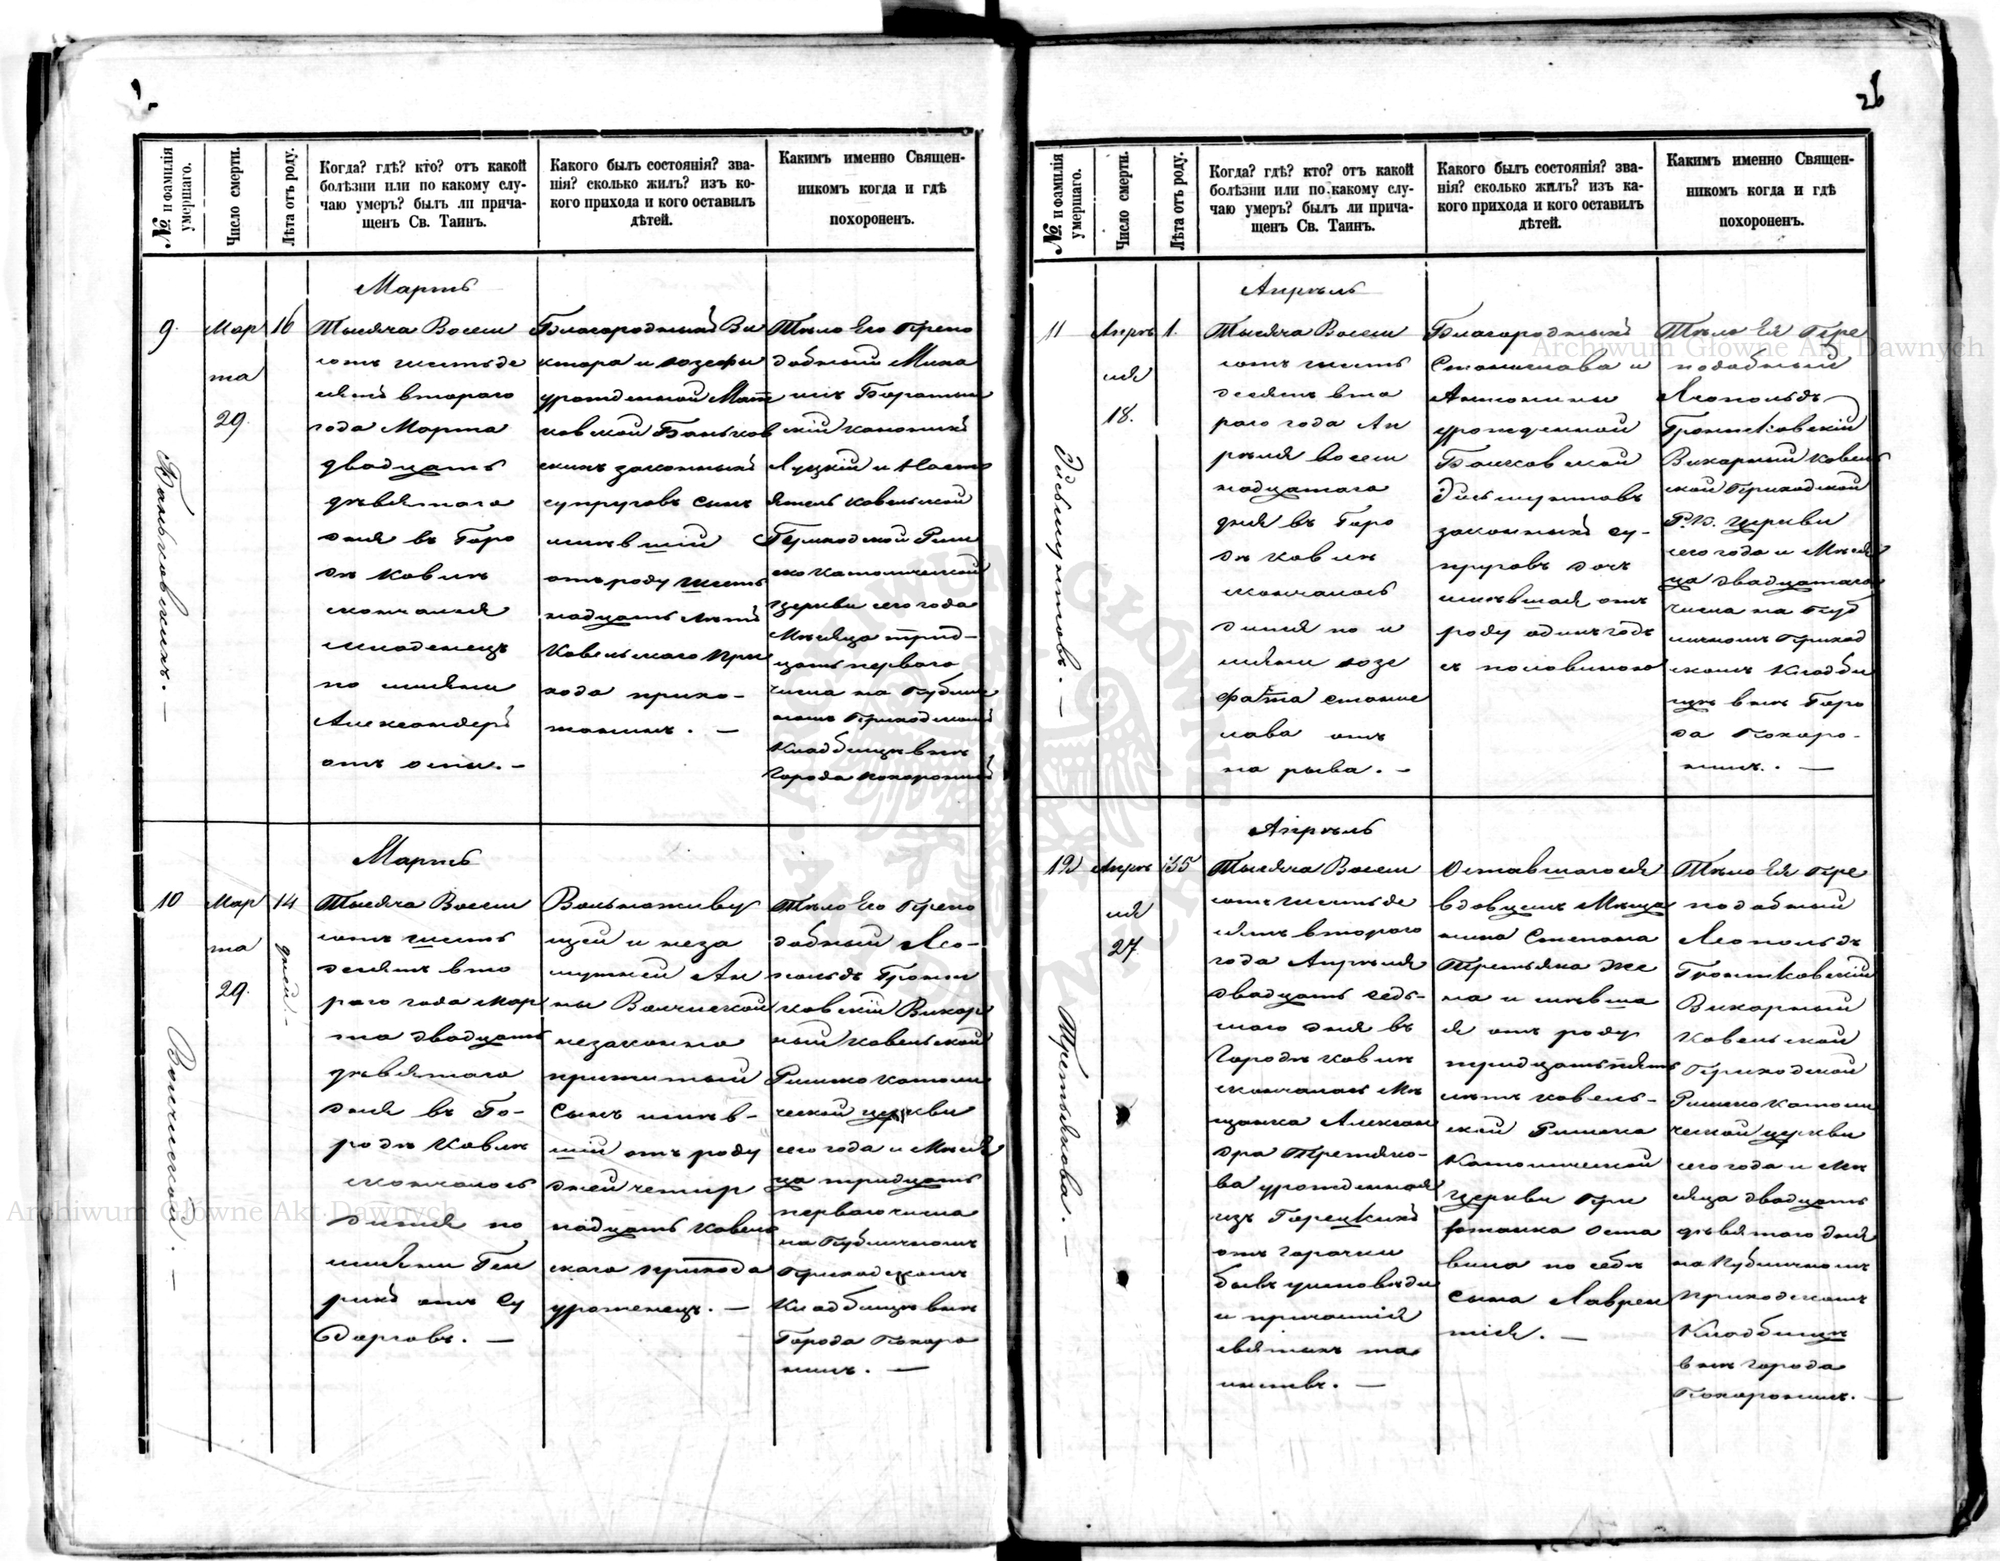 26
№ и фамилія умершаго.
Число смерти.
Лѣта отъ роду.
Когда? гдѣ? кто? отъ какой
болѣзни или по какому слу-
чаю умеръ? былъ ли прича-
щенъ Св. Таинъ.
Какого былъ состоянія? зва-
нія? сколько жилъ? изъ ко-
кого прихода и кого оставилъ
дѣтей.
Какимъ именно Священ-
никомъ когда и гдѣ
похороненъ.
9.
Мар
та
29.
16
Мартъ
Тысяча Восем
сотъ шестьде
сятъ втораго
года Марта
двадцать
девятаго
дня въ Горо
дѣ Ковлѣ
скончался
младенецъ
по имени
Александеръ
отъ оспы. —
Благородныхъ Ви
ктора и Іозефы
урожденной
законныхъ
супруговъ сынъ
имѣвшій
отъ роду шест
надцать лѣтъ
Ковельскаго при
хода прихо-
жанинъ. —
Тѣло Его Препо
добный Миха
илъ
скій каноникъ
Луцкій и Насто
ятель Ковельской
Приходской Рим
ско католической
церкви сего года
Мѣсяца трид-
цать перваго
числа на Публич
номъ Приходскомъ
Кладбищѣ внѣ
города похоронилъ
10
Мар
та
29.
14
дней. —
Вончинской. —
Мартъ
Тысяча Восем
сотъ шесть
десятъ вто
раго года Мар
та двадцать
девятаго
дня въ Го-
родѣ Ковлѣ
скончалось
дитя по
имени Ген
рикъ отъ су
дорговъ. —
Вольноживу
щей и неза
мужней Ан
ны Вончинской
незаконно
прижитый
сынъ имѣв-
шій отъ роду
дней четыр
надцать Ковель
скаго прихода
уроженецъ. —
Тѣло Его Препо
добный Лео-
польдъ Гронт
ковскій Викар
ный Ковельской
Римско католи
ческой церкви
сего года и Мѣся
ца тридцать
перваго числа
на Публичномъ
Приходскомъ
Кладбищѣ внѣ
Города Похоро
нилъ. —
№ и фамилія умершаго.
Число смерти.
Лѣта отъ роду.
Когда? гдѣ? кто? отъ какой
болѣзни или по какому слу-
чаю умеръ? былъ ли прича-
щенъ Св. Таинъ.
Какого былъ состоянія? зва-
нія? сколько жилъ? изъ ка-
кого прихода и кого оставилъ
дѣтей.
Какимъ именно Священ-
никомъ когда и гдѣ
похороненъ.
11
Апрѣ
ля
18.
1.
Апрѣль
Тысяча Восем
сотъ шесть
десятъ вто
раго года Ап
рѣля восем
надцатаго
дня въ Горо
дѣ Ковлѣ
скончалось
дитя по и
мени Іозе
фата Станис
лава отъ
на рыва. —
Благородныхъ
Станислава и
Антонины
урожденной
законныхъ су-
пруговъ дочь
имѣвшая отъ
роду одинъ годъ
съ половиною
Тѣло Ея Пре
подобный
Леопольдъ
Гронтковскій
Викарный Ковель
ской Приходской
Р.К. церкви
сего года и Мѣся
ца двадцатаго
числа на Пуб
личномъ Приход
скомъ Кладби
щѣ внѣ Горо
да Похоро-
нилъ. —
12
Апрѣ
ля
27.
35
Третьякова. —
Апрѣль
Тысяча Восем
сотъ шестьде
сятъ втораго
года Апрѣля
двадцать седь-
маго дня въ
Городѣ Ковлѣ
скончалась Мѣ
щанка Алексан
дра Третьяко-
ва урожденная
изъ Горецкихъ
отъ горячки
бывъ исповѣди
и причастія
святыхъ та
инствъ. —
Оставшагося
вдовцемъ Мѣща
нина Степана
Третьяка же
на и имѣвша
я отъ роду
тридцать пять
лѣтъ Ковель-
ской Римско
Католической
церкви При
хожанка Оста
вила по себѣ
сына Лаврен
тія. —
Тѣло Ея Пре
подобный
Леопольдъ
Гронтковскій
Викарный
Ковельской
Приходской
Римско Католи
ческой церкви
сего года и Мѣ
сяца двадцать
девятаго дня
на Публичномъ
Приходскомъ
Кладбищѣ
внѣ города
Похоронилъ. —
Archiwum Główne Akt Dawnych
Archiwum Główne Akt Dawnych
ARCHIWUM GŁÓWNE AKT DAWNYCH